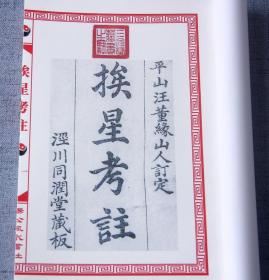 平山汪董緣山人訂定
挨星考註
涇川同潤堂藏板
挨星考註